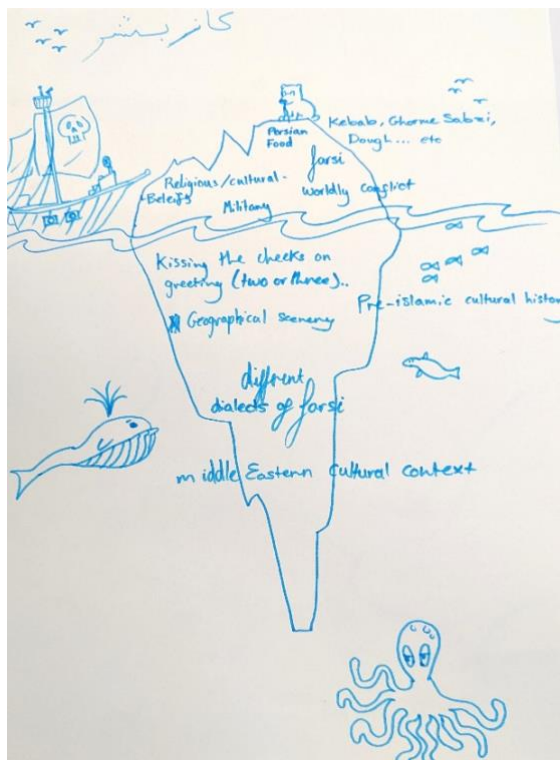 Persian
Food
Kebab, Ghorme Sabzi,
Dough... etc
farsi
Religious/cultural-
Beleifs
worldly conflict
Military
Kissing the cheeks on
greeting (two or three)..
Pre-islamic cultural history
Geographical scenery
different
dialects of farsi
middle Eastern cultural context